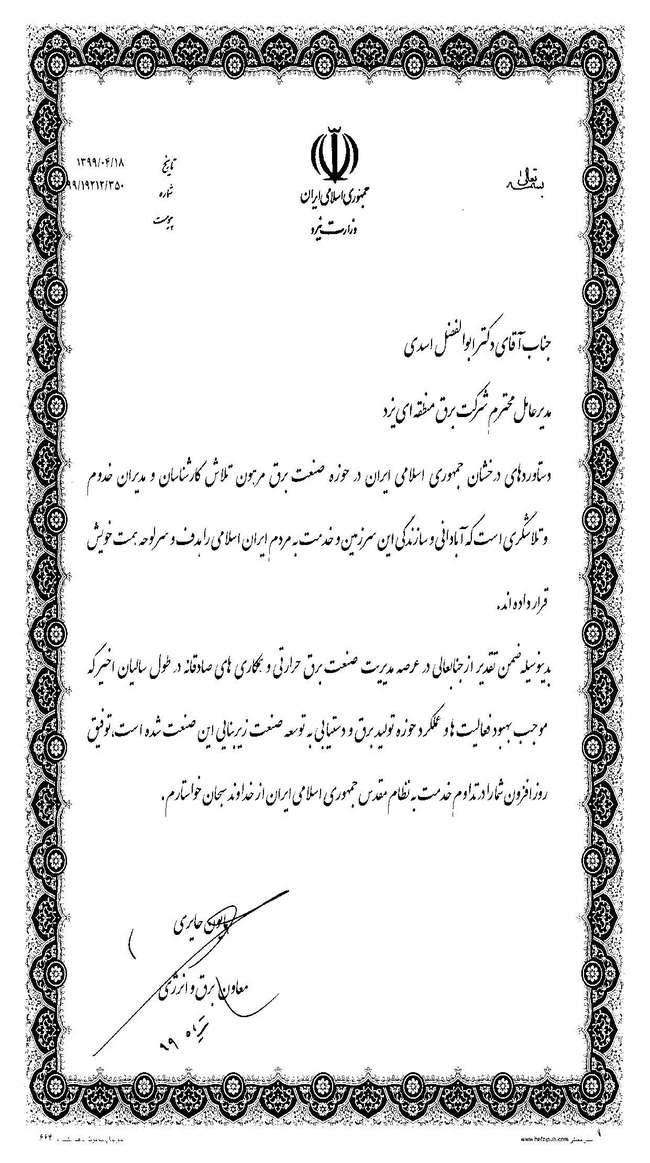 بسمه تعالی
جمهوری اسلامی ایران
وزارت نیرو
تاریخ ۱۳۹۹/۰۴/۱۸
شماره ۹۹/۱۹۲۱۲/۳۵۰
پیوست
جناب آقای دکتر ابوالفضل اسدی
مدیرعامل محترم شرکت برق منطقه ای یزد
دستاوردهای درخشان جمهوری اسلامی ایران در حوزه صنعت برق مرهون تلاش کارشناسان و مدیران خدوم
و تلاشگری است که آبادانی و سازندگی این سرزمین و خدمت به مردم ایران اسلامی را هدف و سرلوحه همت خویش
قرار داده اند.
بدینوسیله ضمن تقدیر از جنابعالی در عرصه مدیریت صنعت برق حرارتی و همکاری های صادقانه در طول سالیان اخیر که
موجب بهبود فعالیت ها و عملکرد حوزه تولید برق و دستیابی به توسعه صنعت زیربنایی این صنعت شده است، توفیق
روز افزون شما را در تداوم خدمت به نظام مقدس جمهوری اسلامی ایران از خداوند سبحان خواستارم.
همایون حایری
معاون برق و انرژی
تیرماه ۹۹
۶۶۲
www.hafezpub.com
۱